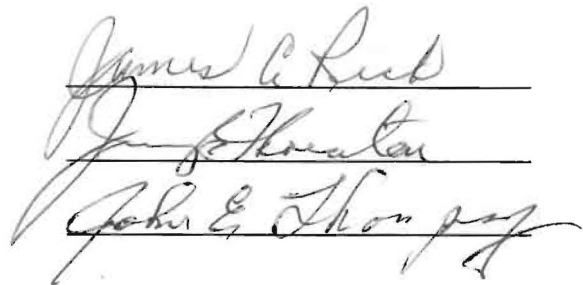 James A Rick
E Thornton
John E Thompson